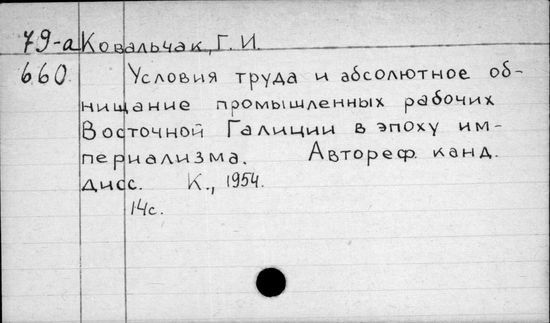 79-а Ковальчак, Г. И.
660. Условия труда и абсолютное об-
нищание промышленных рабочих
Восточной Галиции в эпоху им-
периализма. Автореф. канд.
дисс. К., 1954.
14с.